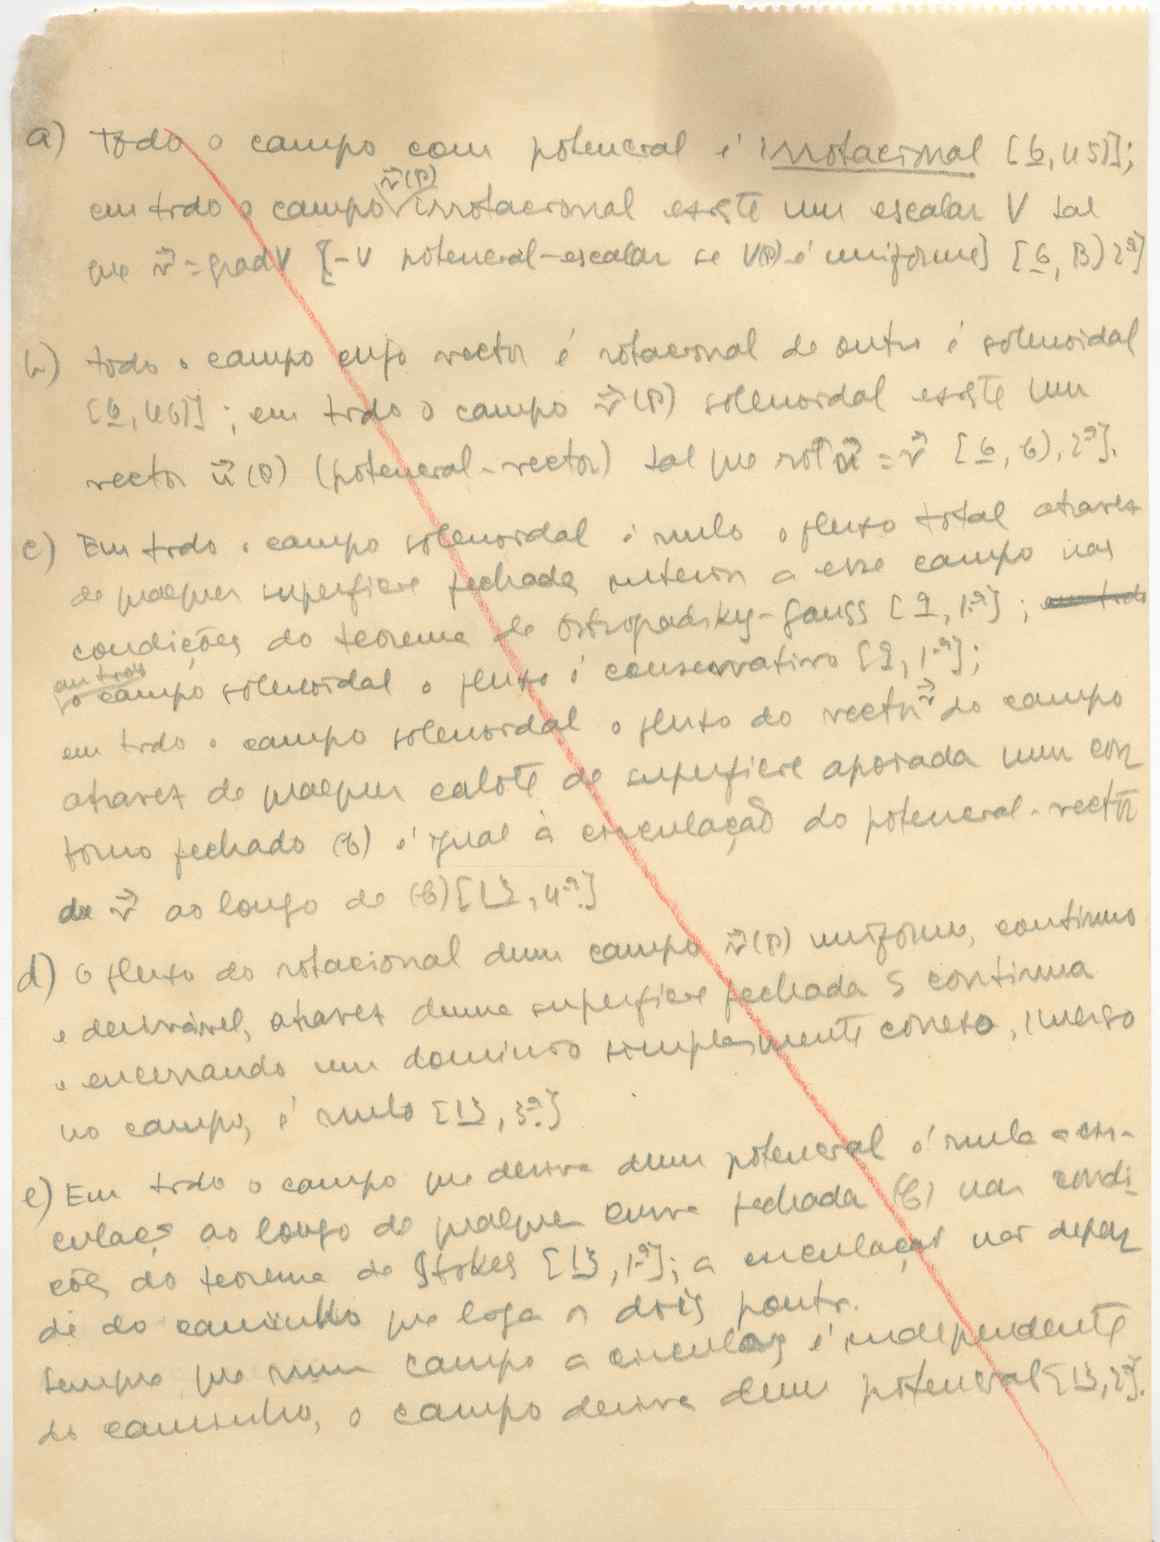 a) Todo o campo com potencial é irrotacional [6, 45)];
v⃗(P)
em todo o campo irrotacional existe um escalar V tal
que v⃗ = grad V [-V potencial-escalar se V(P) é uniforme] [6, B) 2º]
b) todo o campo cujo vector é rotacional de outro é solenoidal
[6, 46)]; em todo o campo v⃗(P) solenoidal existe um
vector u⃗(P) (potencial-vector) tal que rot u⃗ = v⃗ [6, 6), 2º].
c) Em todo o campo solenoidal é nulo o fluxo total através
de qualquer superfície fechada interior a esse campo nas
condições do teorema de Ostrogradsky-Gauss [9, 1º]; em todo
em todo
o campo solenoidal o fluxo é conservativo [9, 1º];
em todo o campo solenoidal o fluxo do vector v⃗ do campo
através de qualquer calote de superfície apoiada num con
torno fechado (C) é igual à circulação do potencial-vector
de v⃗ ao longo de (C) [13, 4º]
d) O fluxo do rotacional dum campo v⃗(P) uniforme, contínuo
e derivável, através duma superfície fechada S contínua
e encerrando um domínio simplesmente conexo, imerso
no campo, é nulo [13, 3º]
e) Em todo o campo que derive dum potencial é nula a cir-
culação ao longo de qualquer curva fechada (C) nas condi
ções do teorema de Stokes [13, 1º]; a circulação não depen
de do caminho que liga os dois pontos.
Sempre que num campo a circulação é independente
do caminho, o campo deriva dum potencial [13, 2º].